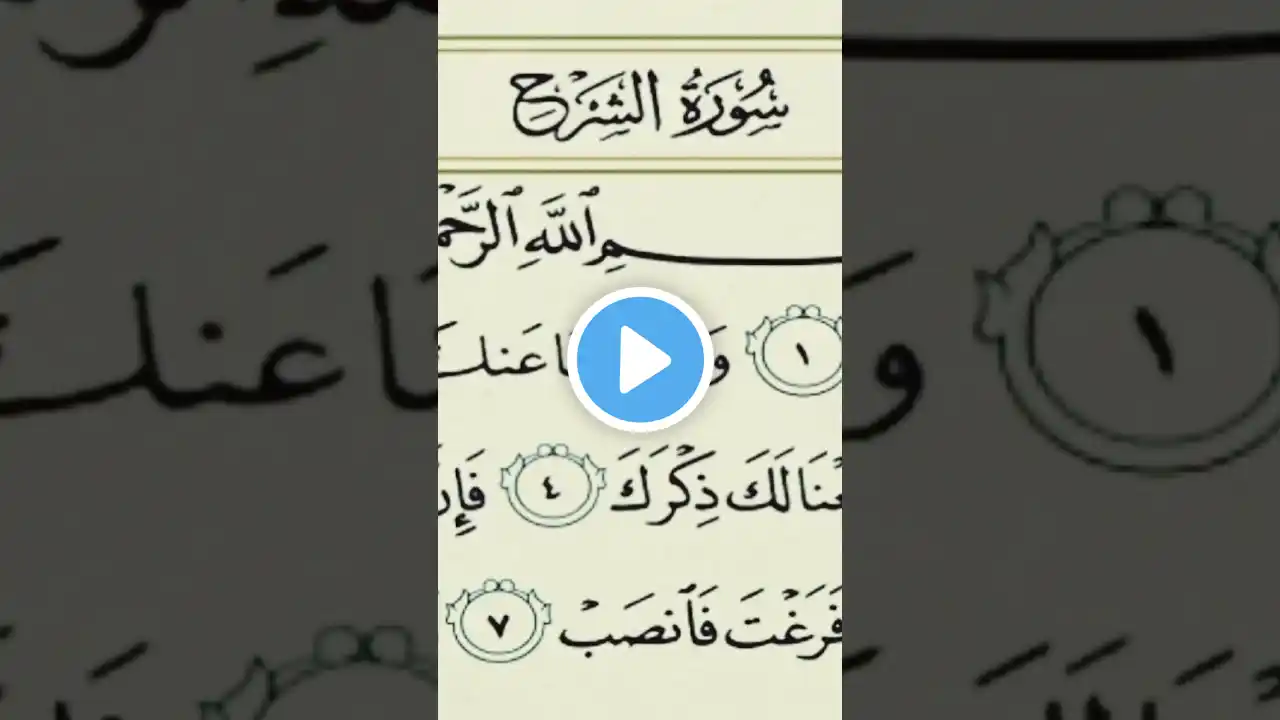 سُورَةُ الشَّرْحِ
ٱللَّهِ ٱلرَّحْ
١ وَ عَنكَ
لَكَ ذِكْرَكَ ٤
فَرَغْتَ فَٱنصَبْ ٧